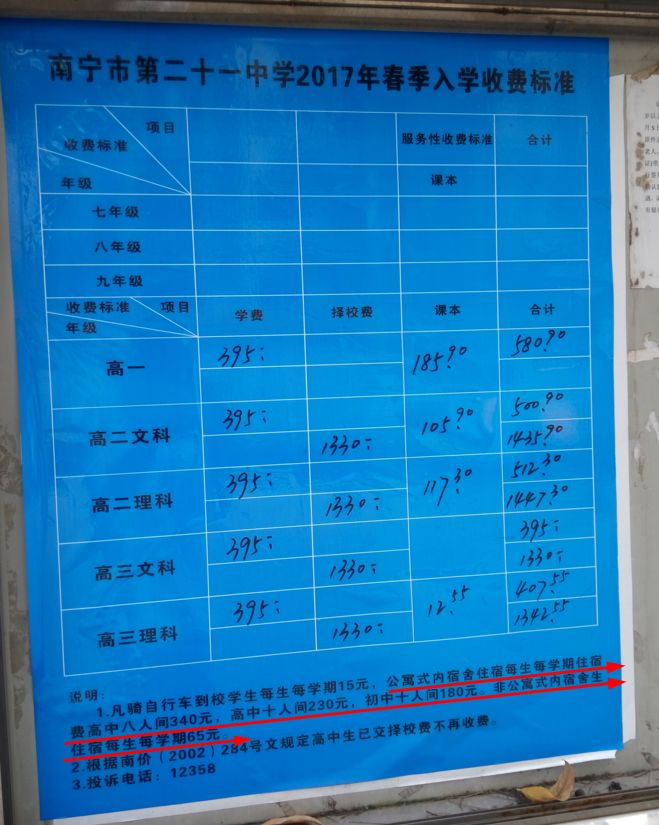 南宁市第二十一中学2017年春季入学收费标准
项目 服务性收费标准 合计
收费标准
年级 课本
七年级
八年级
九年级
收费标准 项目 学费 择校费 课本 合计
年级
高一 395 185.90 580.90
高二文科 395 105.90 500.90
1330 1435.90
高二理科 395 117.30 512.30
1330 1447.30
高三文科 395 395
1330 1330
高三理科 395 12.55 407.55
1330 1342.55
说明：
1.凡骑自行车到校学生每生每学期15元，公寓式内宿舍住宿每生每学期住宿
费高中八人间340元，高中十人间230元，初中十人间180元。非公寓式内宿舍生
住宿每生每学期65元。
2.根据南价（2002）284号文规定高中生已交择校费不再收费。
3.投诉电话：12358